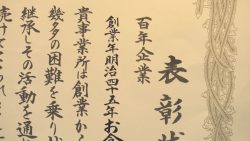 表彰状
百年企業
創業年明治四十五年
貴事業所は創業か
幾多の困難を乗り
継承しその活動を通
続けて